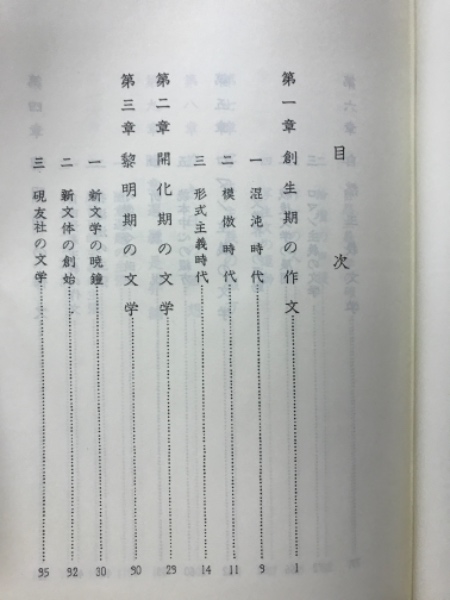 目次
第一章 創生期の作文……1
一 混沌時代……
二 模倣時代……11
三 形式主義時代……14
第二章 開化期の文学……
第三章 黎明期の文学……30
一 新文学の暁鐘……30
二 新文体の創始……32
三 硯友社の文学……35